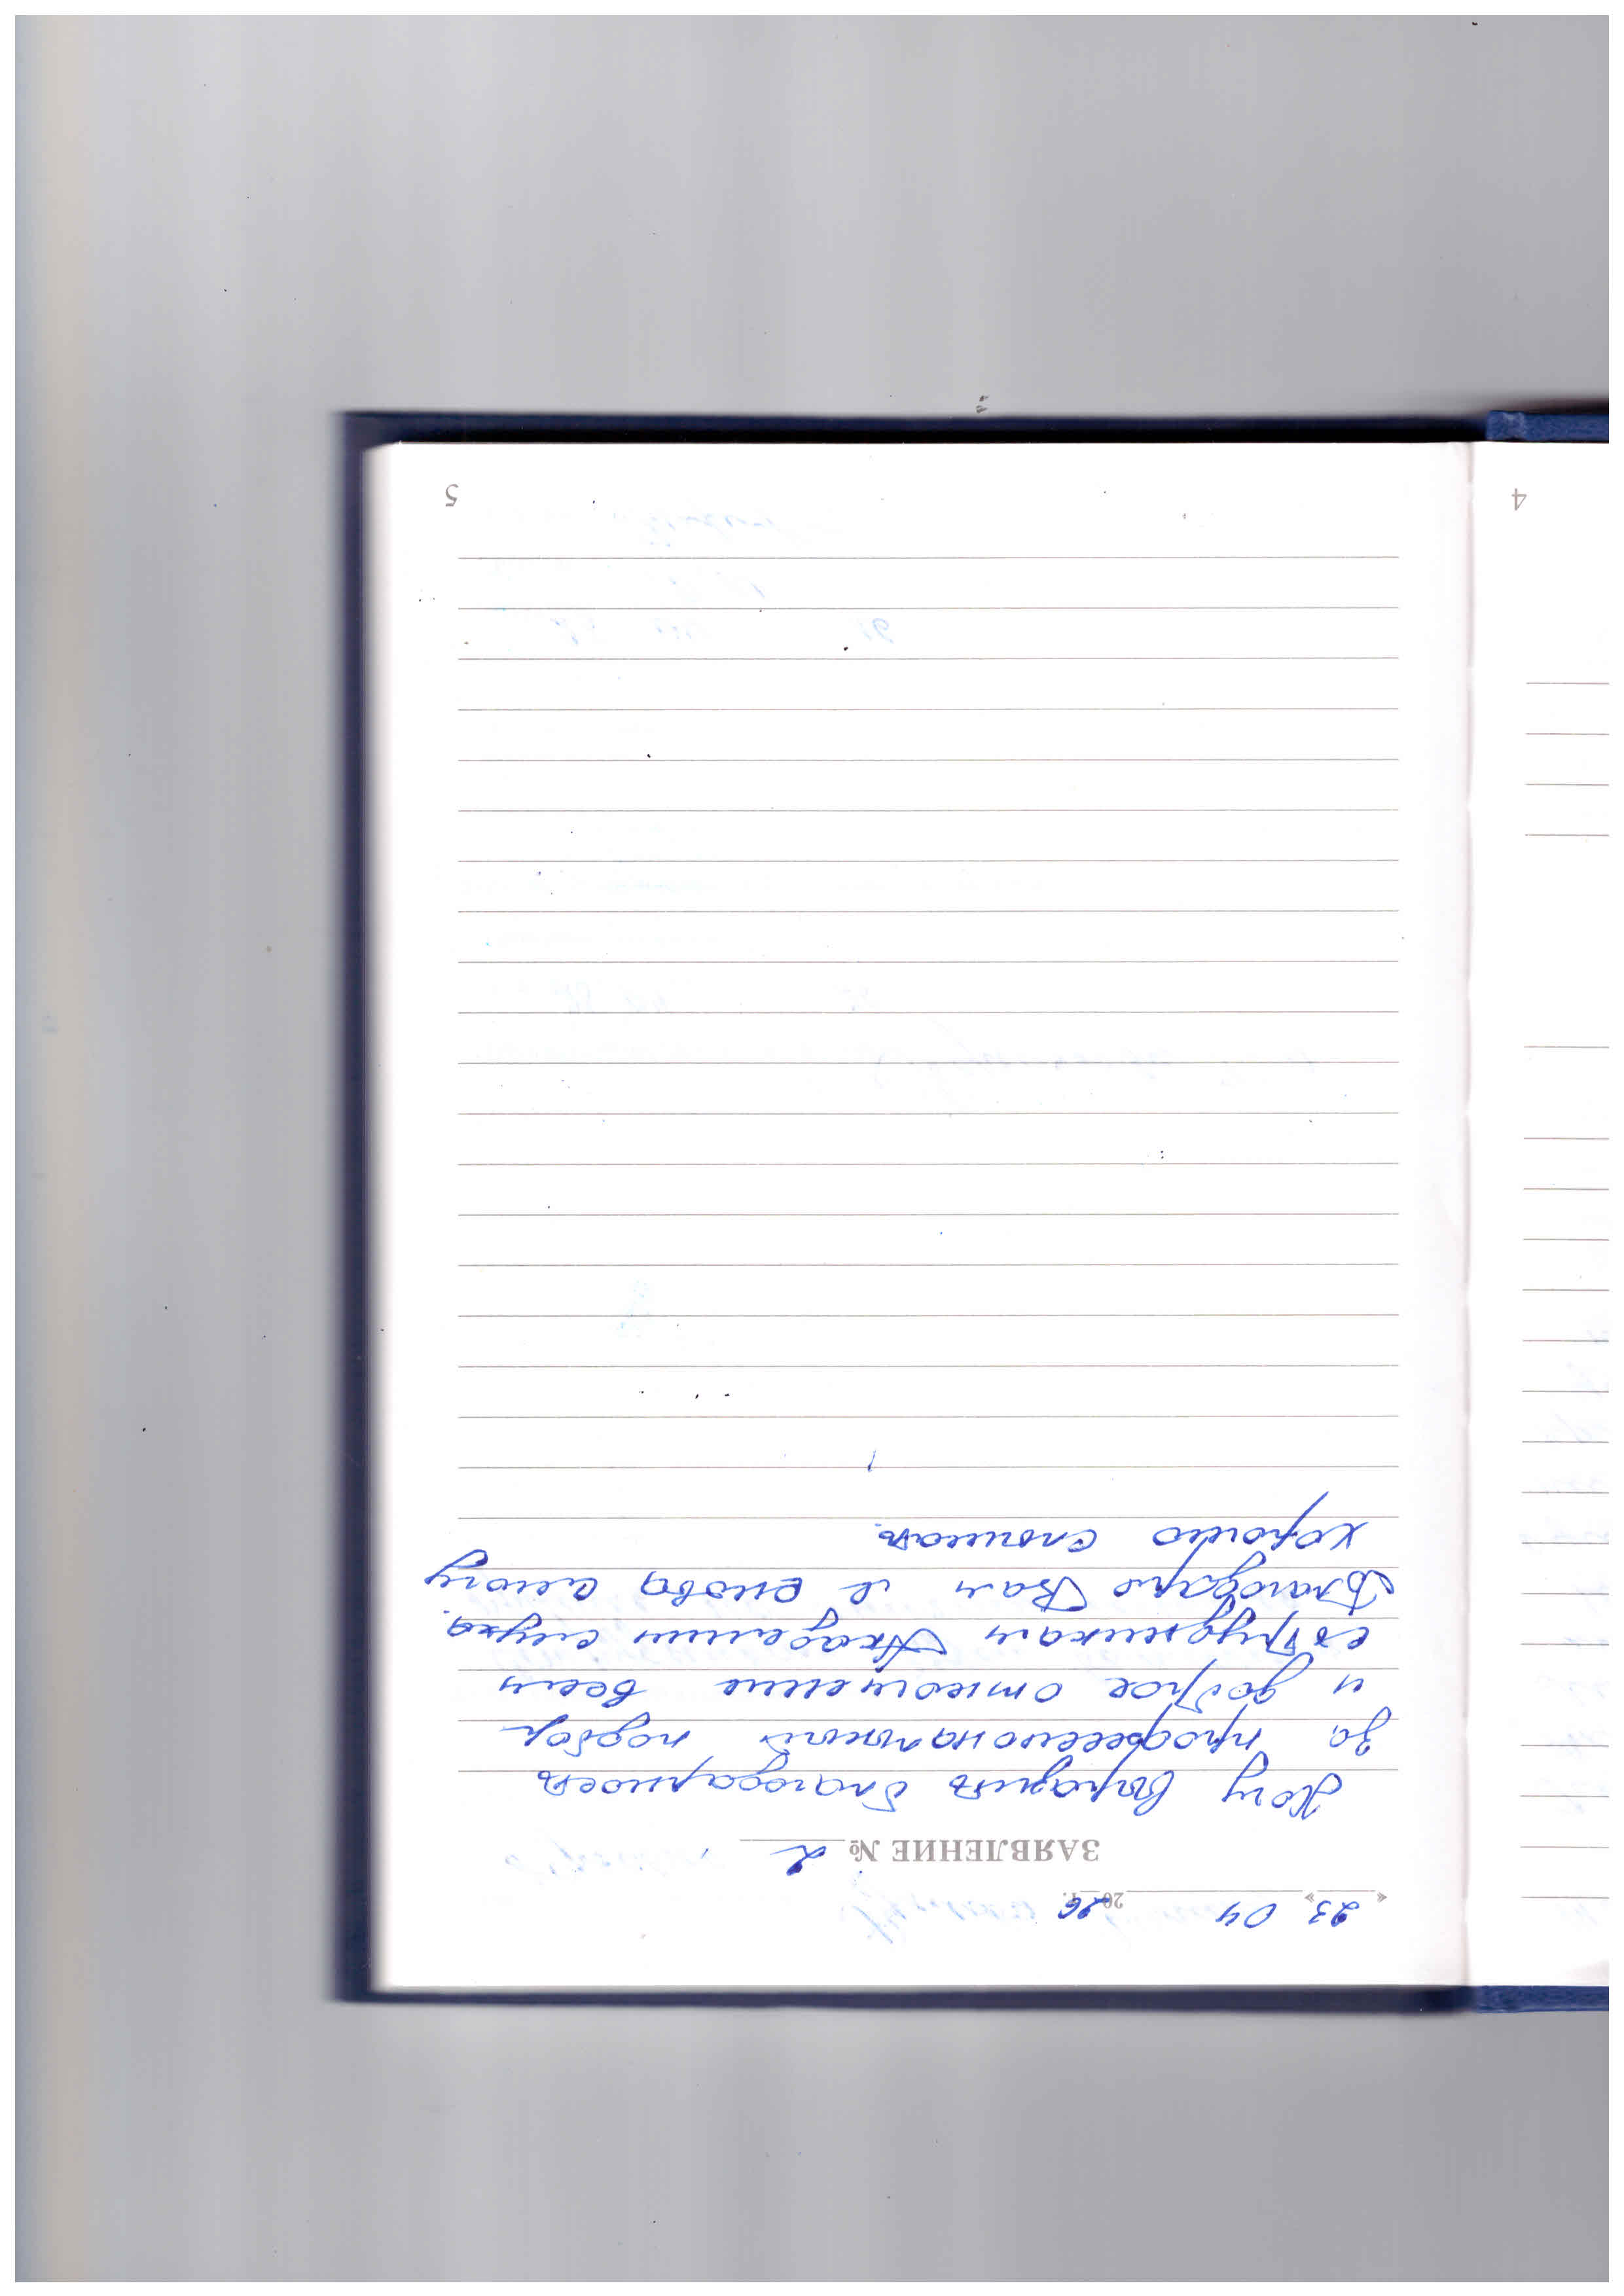 « 23 » 04 2026 г.
ЗАЯВЛЕНИЕ № 2
Хочу выразить благодарность
за профессиональный подбор
и доброе отношение всем
сотрудникам Академии слуха.
Благодаря Вам я снова смогу
хорошо слышать.
5
4